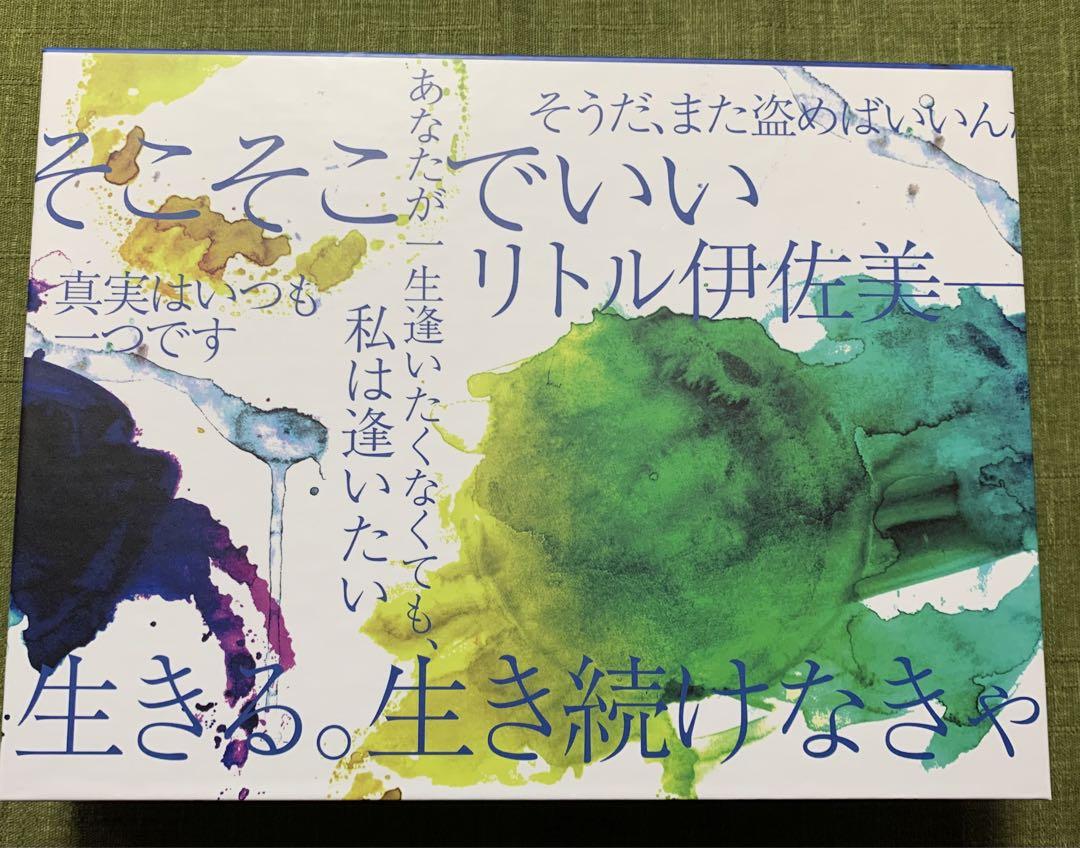 そうだ、また盗めばいいん
そこそこでいい
リトル伊佐美―
あなたが一生逢いたくなくても、
私は逢いたい
真実はいつも
一つです
生きる。生き続けなきゃ